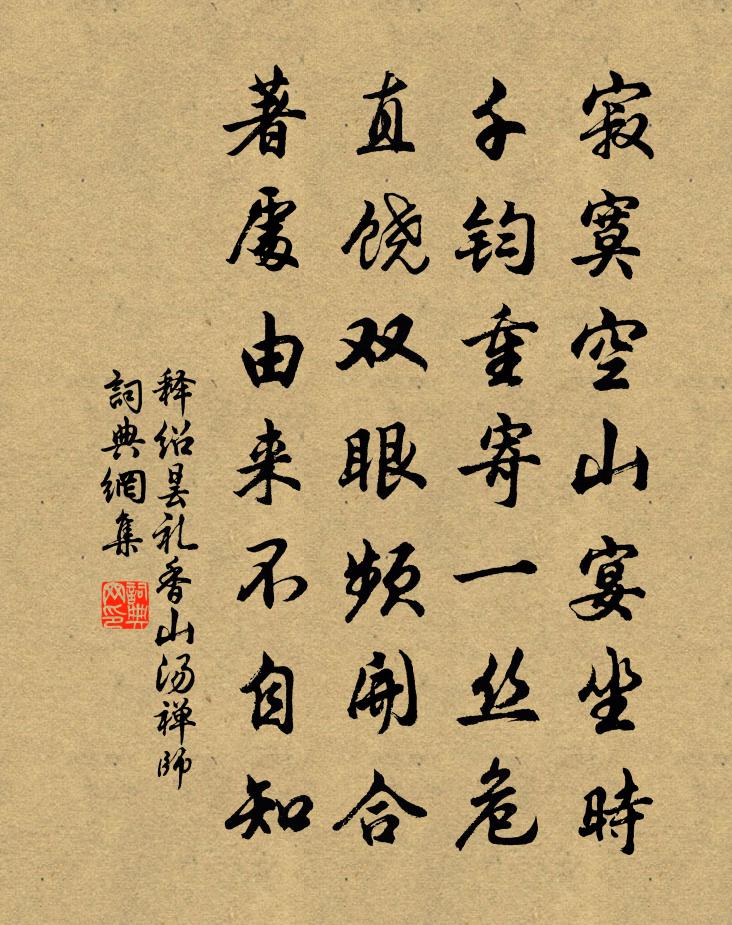 寂寞空山宴坐時
千鈞重寄一丝危
直饶双眼頻開合
著處由来不自知
释绍曇礼香山汤禅師
詞典網集
詞典
网印